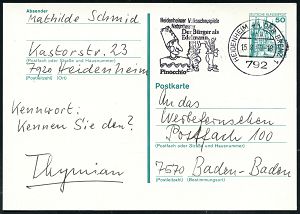 Absender
Mathilde Schmid
Kastorstr. 23
(Straße und Hausnummer)
7920 Heidenheim
(Postleitzahl) (Ort)
Kennwort:
Kennen Sie den?
Thymian
Heidenheimer Volksschauspiele
Naturtheater
Der Bürger als
Edelmann
Pinocchio
HEIDENHEIM
792
50
Postkarte
An das
Werbefernsehen
Postfach 100
(Postfach oder Straße und Hausnummer)
7570 Baden-Baden
(Postleitzahl) (Bestimmungsort)